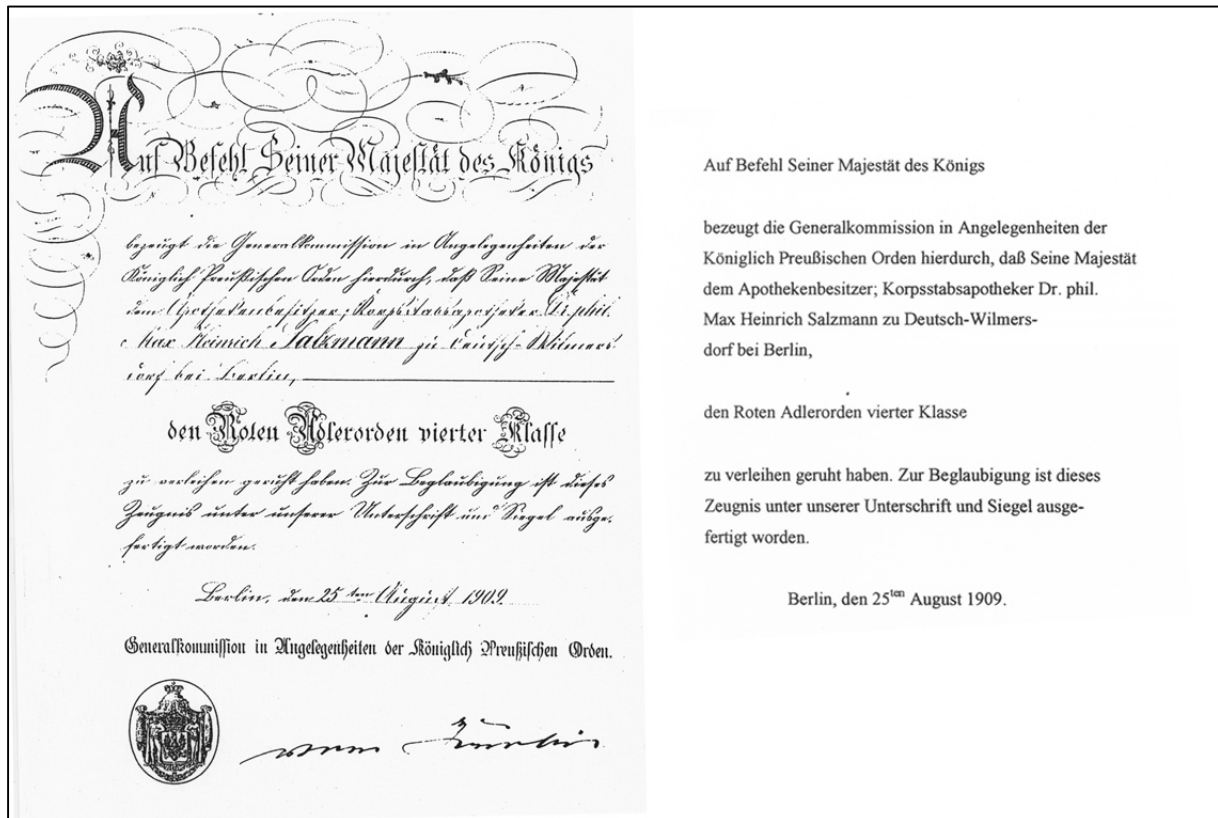 Auf Befehl Seiner Majestät des Königs
bezeugt die Generalkommission in Angelegenheiten der
Königlich Preußischen Orden hierdurch, daß Seine Majestät
dem Apothekenbesitzer; Korpsstabsapotheker Dr. phil.
Max Heinrich Salzmann zu Deutsch-Wilmers-
dorf bei Berlin,
den Roten Adlerorden vierter Klasse
zu verleihen geruht haben. Zur Beglaubigung ist dieses
Zeugnis unter unserer Unterschrift und Siegel ausge-
fertigt worden.
Berlin, den 25ten August 1909.
Generalkommission in Angelegenheiten der Königlich Preußischen Orden.
Auf Befehl Seiner Majestät des Königs
bezeugt die Generalkommission in Angelegenheiten der
Königlich Preußischen Orden hierdurch, daß Seine Majestät
dem Apothekenbesitzer; Korpsstabsapotheker Dr. phil.
Max Heinrich Salzmann zu Deutsch-Wilmers-
dorf bei Berlin,
den Roten Adlerorden vierter Klasse
zu verleihen geruht haben. Zur Beglaubigung ist dieses
Zeugnis unter unserer Unterschrift und Siegel ausge-
fertigt worden.
Berlin, den 25ten August 1909.